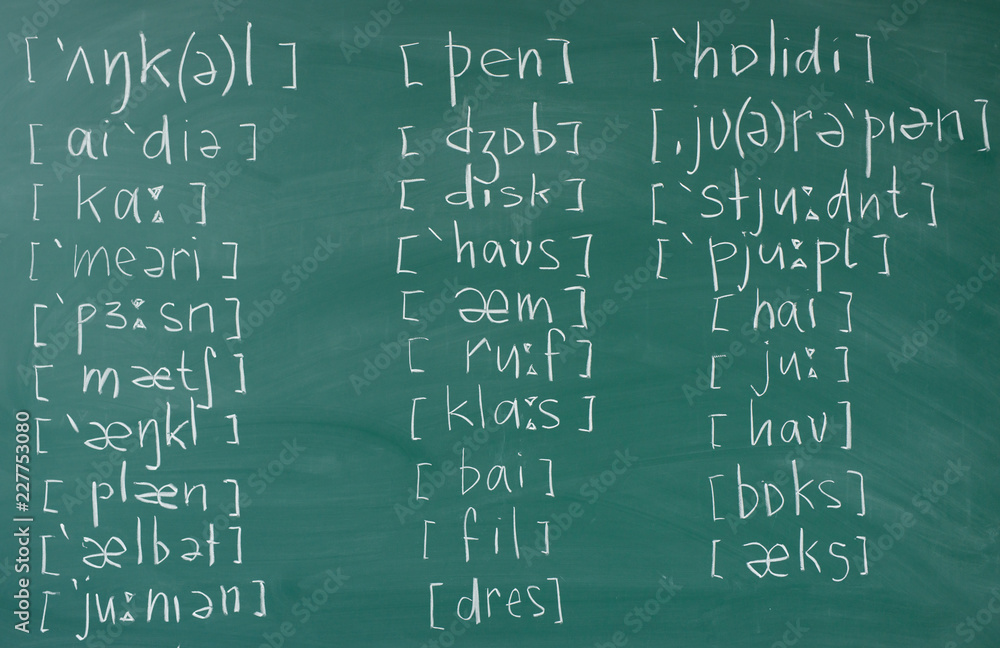 [ˋʌŋk(ə)l]
[aiˋdiə]
[kaː]
[ˋmeəri]
[ˋpɜːsn]
[mætʃ]
[ˋæŋkl]
[plæn]
[ˋælbət]
[ˋjuːnɪən]
[pen]
[dʒɒb]
[disk]
[ˋhaʊs]
[æm]
[ruːf]
[klaːs]
[bai]
[fil]
[dres]
[ˋhɒlidi]
[ˌjʊ(ə)rəˋpɪən]
[ˋstjuːdnt]
[ˋpjuːpl]
[hai]
[juː]
[hav]
[bɒks]
[æks]
Adobe Stock | #227753080